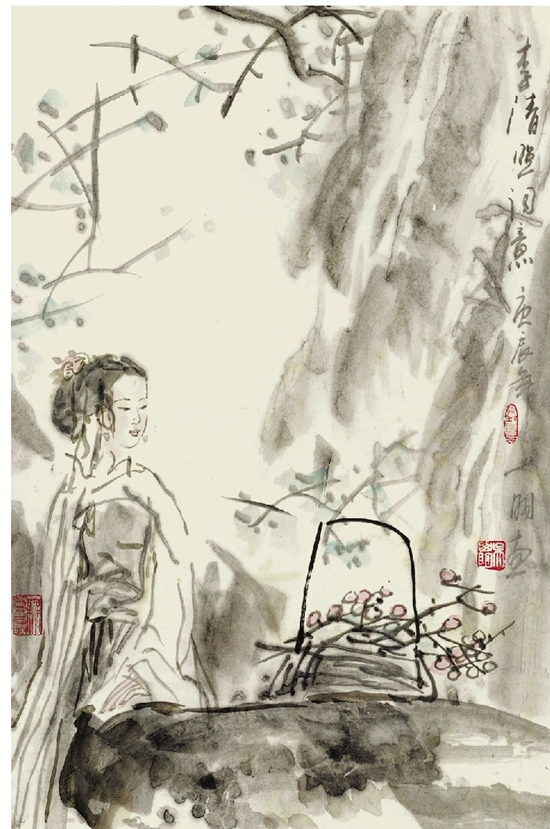 李清照词意 庚辰年
一明画